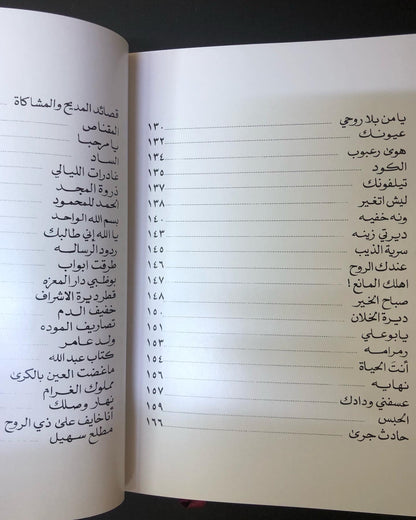 يامن بلا روحي ١٣٠
عيونك ١٣٢
هوى رعبوب ١٣٤
الكود ١٣٥
تيلفونك ١٣٧
ليش اتغير ١٣٨
ونه خفيه ١٤٠
ديرتي زينه ١٤٣
سرية الذيب ١٤٥
عندك الروح ١٤٦
اهلك المانع! ١٤٧
صباح الخير ١٤٨
ديرة الخلان ١٥٠
يابوعلي ١٥١
رمرامه ١٥٣
أنت الحياة ١٥٤
نهايه ١٥٦
عسفني ودادك ١٥٧
الحبس ١٥٩
حادث جرى ١٦٦
قصائد المديح والمشاكاة
المقناص
يامرحبا
الساد
غادرات الليالي
ذروة المجد
الحمد للمحمود
بسم الله الواحد
يا الله إني طالبك
ردود الرساله
طرقت ابواب
بوظبي دار المعزه
قطر ديرة الاشراف
خفيف الدم
تصاريف الموده
ولد عامر
كتاب عبدالله
ماغضت العين بالكرى
مملوك الغرام
نهار وصلك
أنا خايف على ذي الروح
مطلع سهيل